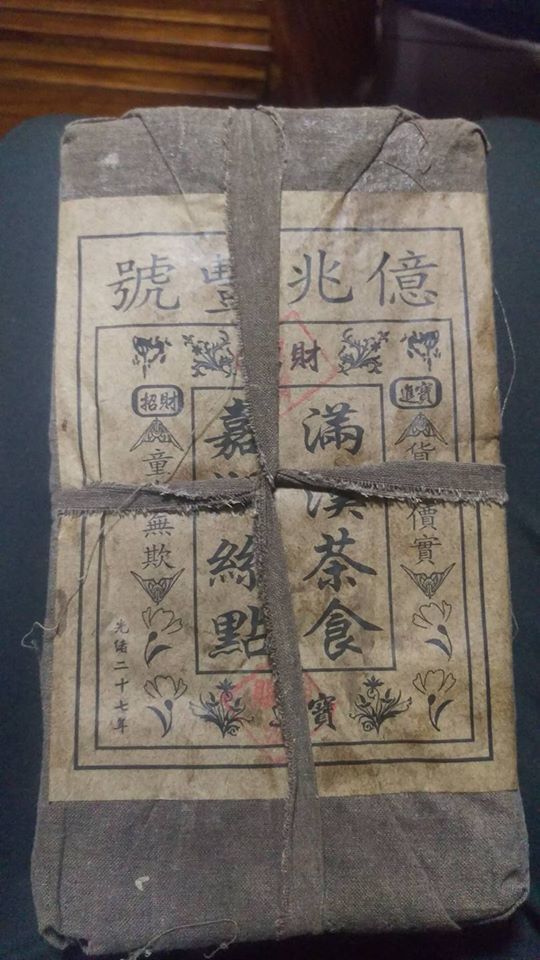 億兆豐號
財
進寶
貨價實
滿漢茶食
嘉絲點
招財
童無欺
寶
光緒二十七年